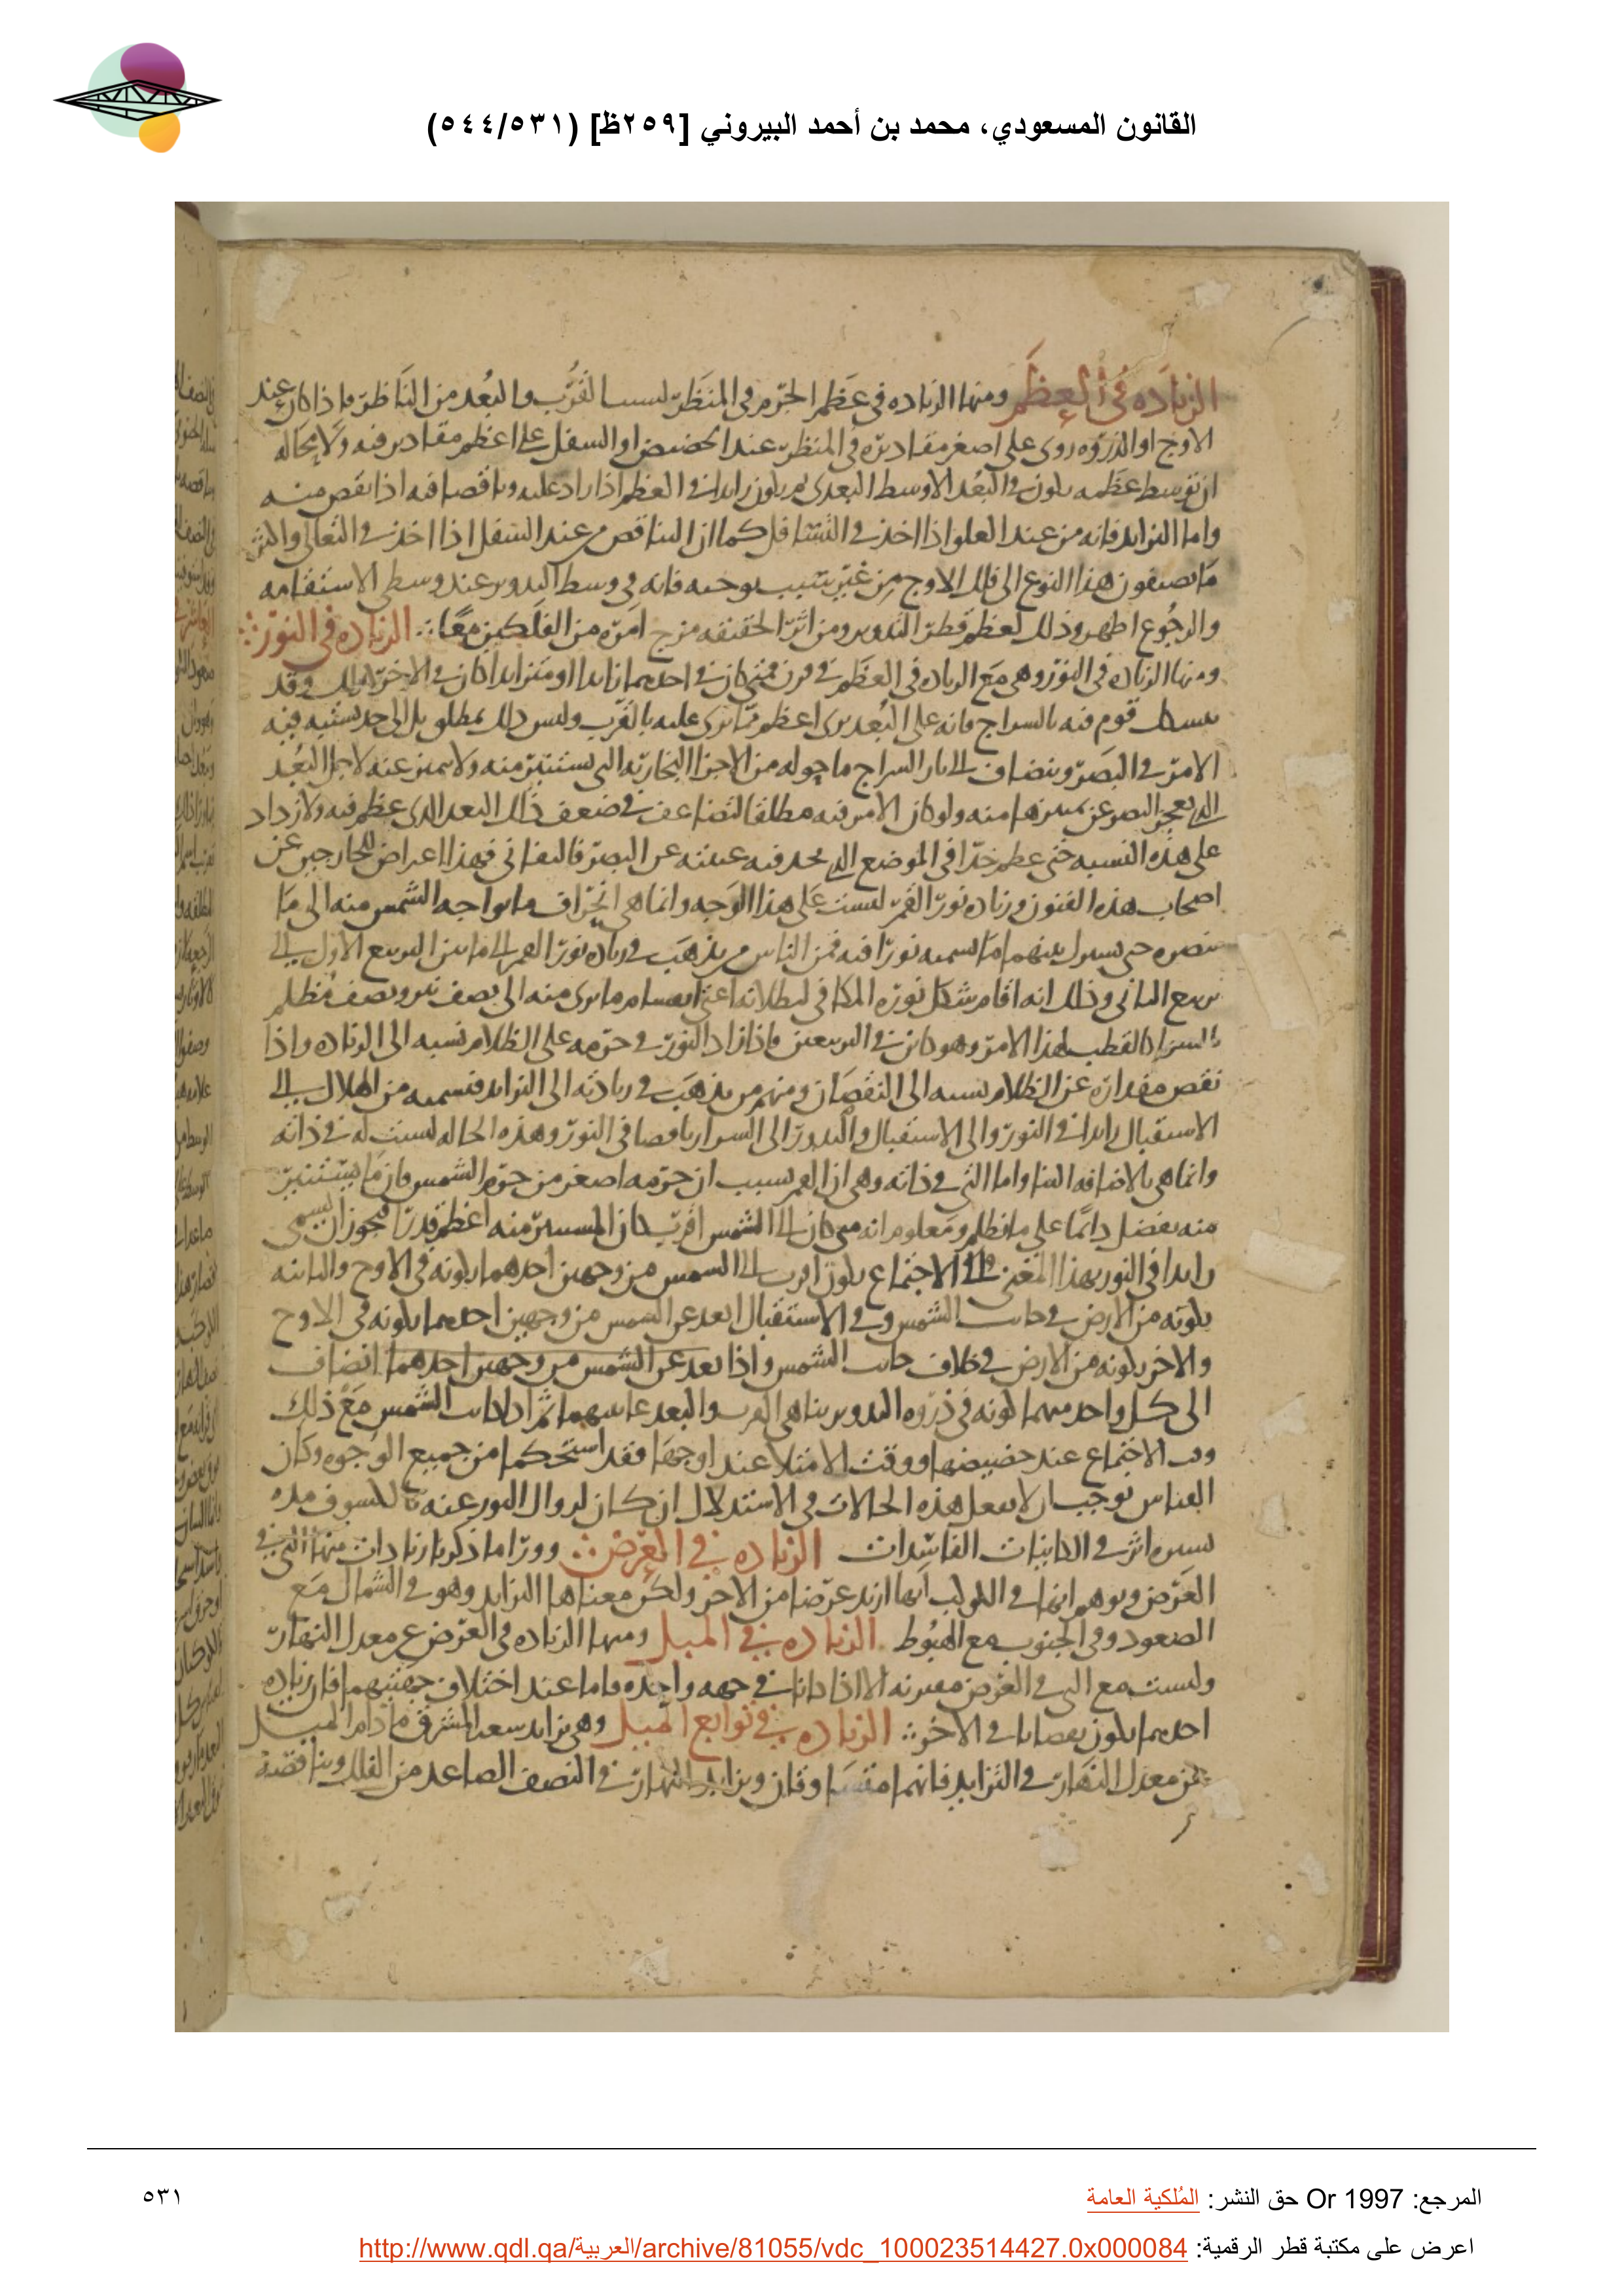 القانون المسعودي، محمد بن أحمد البيروني [٢٥٩ظ] (٥٤٤/٥٣١)
الزياده في العظم ومنها الزياده في عظم الجرم في المنظر لسبب القرب والبعد من الناظر فاذا كان عند
الاوج او الذروه روى على اصغر مقاديره في المنظر عند الحضيض او السفل على اعظم مقاديره فيه ولا محاله
ان توسط عظمه يكون في البعد الاوسط البعدي ثم يكون زايدا في العظم اذا زاد عليه وناقصا فيه اذا نقص منه
واما التزايد فانه من عند العلو اذا اخذ في التسافل كما ان التناقص من عند السفل اذا اخذ في التعالي واكثر
ما يصفون هذا النوع الى فلك الاوج من غير تثبيت يوجبه فانه في وسط التدوير عند وسطي الاستقامه
والرجوع اظهر وذلك لعظم قطر التدوير ومن اثر الحقيقه مزج امره من الفلكين معا الزياده في النور
ومنها الزياده في النور وهي مع الزياده في العظم في قرن فمتى كان في احديهما زايدا او متزايدا كان في الاخر كذلك وقد
تشكك قوم فيه بالسراج فانه على البعد يرى اعظم مما يرى عليه بالقرب وليس ذلك بمطلق بل الى حد يشتبه فيه
الامر في البصر وينضاف الى نار السراج ما حوله من الاجزا البخاريه التي تستنير منه ولا تميز عنه لاجل البعد
الذي يعجز البصر عن تمييزها منه ولو كان الامر فيه مطلقا لتضاعف في ضعف ذلك البعد الذي عظم فيه ولازداد
على هذه النسبه حتى عظم جدا في الموضع الذي نجد فيه غيبته عن البصر فالتفاني فهذا اعراض للخارجين عن
اصحاب هذه الفنون وزياده نور القمر ليست على هذا الوجه وانما هي انحراف ما يواجه الشمس منه الى ما
نبصره حتى يشترك بينهما ما نسميه نورا فيه فمن الناس من يذهب في زياده نور القمر الى ما بين التربيع الاول الى
تربيع الثاني وذلك انه اقام شكل نوره المكافي لبطلانه اعني انقسام ما يرى منه الى نصف نير ونصف مظلم
كالقطب لهذا الامر وهو كاين في التربيعين فاذا زاد النور في جرمه على الظلام نسبه الى الزياده واذا
نقص مقداره عن الظلام نسبه الى النقصان ومنهم من يذهب في زيادته الى التزايد فتسميه من الهلال الى
الاستقبال زايدا في النور والى الاستقبال والبدور الى السرار ناقصا في النور وهذه الحاله ليست له في ذاته
وانما هي بالاضافه الينا واما التي في ذاته وهي ان القمر بسبب ان جرمه اصغر من جرم الشمس فان ما يستنير
منه يفضل دائما على ما يظلم ومعلوم انه متى كان الى الشمس اقرب كان المستنير منه اعظم قدرا فيجوز ان يسمى
زايدا في النور بهذا المعنى وفي الاجتماع يكون اقرب الى الشمس من وجهين احدهما بكونه في الاوج والثانيه
بكونه من الارض في جانب الشمس وفي الاستقبال ابعد عن الشمس من وجهين احدهما بكونه في الاوج
والاخر بكونه من الارض في خلاف جانب الشمس واذا بعد عن الشمس من وجهين احدهما انضاف
الى كل واحد منهما كونه في ذروه التدوير تناهي القرب والبعد غايتيهما ثم اذا كانت الشمس مع ذلك
وقت الاجتماع عند حضيضها ووقت الامتلا عند اوجها فقد استحكما من جميع الوجوه وكان
القياس يوجب ان لا تغفل هذه الحالات في الاستدلال ان كان لزوال النور عنه بالكسوف مده
يسيره اثر في الكاينات الفاسدات الزياده في العرض وورا ما ذكرنا زيادات منها التي في
العرض ويوهم انها في الكوكب انها ازيد عرضا من الاخر ولكن معناها التزايد وهو في الشمال مع
الصعود وفي الجنوب مع الهبوط الزياده في الميل ومنها الزياده في العرض عن معدل النهار
وليست مع التي في العرض مقترنه الا اذا كانا في جهه واحده فاما عند اختلاف جهتيهما فان زياده
احديهما يكون نقصانا في الاخر الزياده في توابع الميل وهي تزايد سعه المشرق ما دام الميل
عن معدل النهار في التزايد فانهما متساوقان وتزايد النهار في النصف الصاعد من الفلك وتناقصه
المرجع: Or 1997 حق النشر: المُلكية العامة
٥٣١
اعرض على مكتبة قطر الرقمية: http://www.qdl.qa/العربية/archive/81055/vdc_100023514427.0x000084